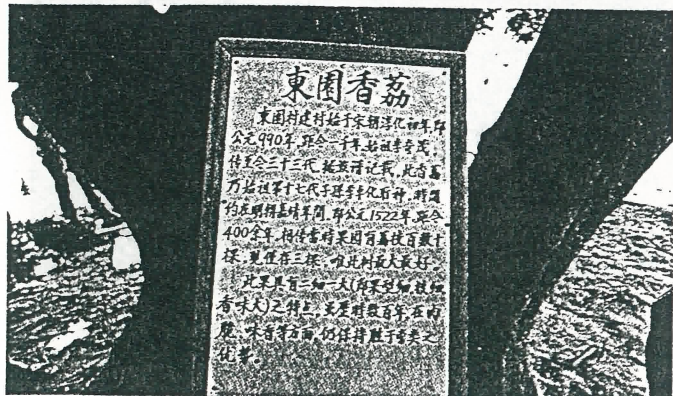 東園香荔
東園村建村始于宋朝淳化初年,即
公元990年,距今一千年,始祖李
传至今三十三代。族谱记载,此香荔
乃始祖第十七代子孙李 所种,时间
约在明朝嘉靖年间,即公元1522年,距今
400余年,相传当时果园有荔枝百数十
棵,现仅存三棵,唯此 最大最好。
此果具有二细一大(即果型细、核细、
香味大)之特点,虽历时数百年,在肉
味香等方面,仍保持胜于香类之
优势。